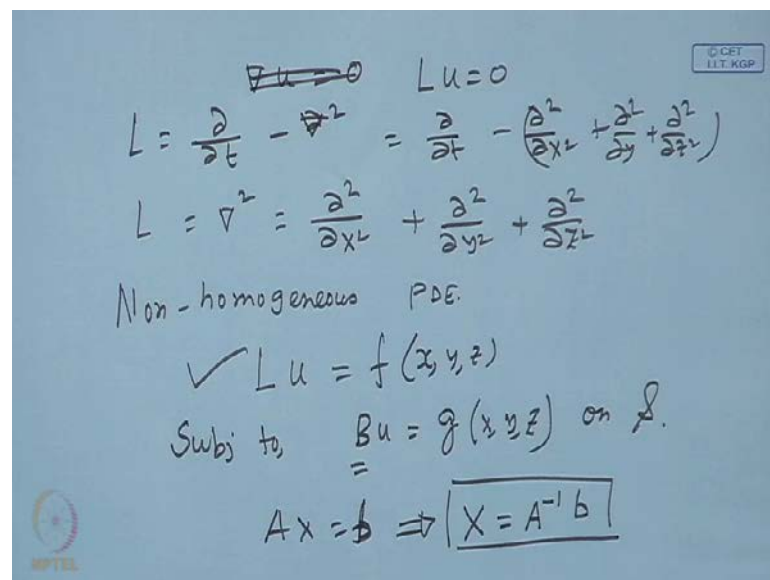 ∇u=0 Lu=0
© CET
I.I.T. KGP
L = ∂/∂t - ∇² = ∂/∂t - (∂²/∂x² + ∂²/∂y + ∂²/∂z²)
L = ∇² = ∂²/∂x² + ∂²/∂y² + ∂²/∂z²
Non-homogeneous PDE.
✓ Lu = f(x, y, z)
Subj to, Bu = g(x y z) on S.
Ax = b ⇒ X = A⁻¹ b
NPTEL